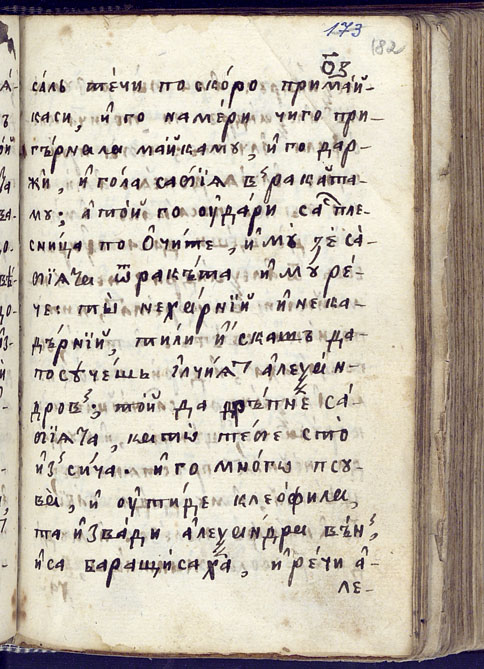 173
182
са́ль те́чи по ско́ро при май-
каси, и҆ го наме́ри чиго при-
гъ́рнала ма́йка му, и҆ го дар-
жи, и҆ го́ла са́бїѧ въ рака́та-
му; а҆ то́й го ѹ҆да́ри са пле-
сни́ца по Ѻ҆чи́те, и҆ мꙋ̀ зе са́-
бїѧта ѿ ракъ́та и҆ мꙋ ре́-
че: ты̀ неха́рнїй и҆ нека-
дъ́рнїй, ти ли и҆́скашъ да-
посѣ́чешь
дровъ; то́й да дръ́пне са́-
бїѧта, като̀ те́бе сто
и҆зси́ча. и҆ го мно́гѡ псꙋ-
ва̀, и҆ ѹ҆ти́де клео́фила,
та и҆зва́ди а҆леѯа́ндра въ́нъ,
и҆ са варащи́саха̀, и҆ ре́чи а҆-
ле-